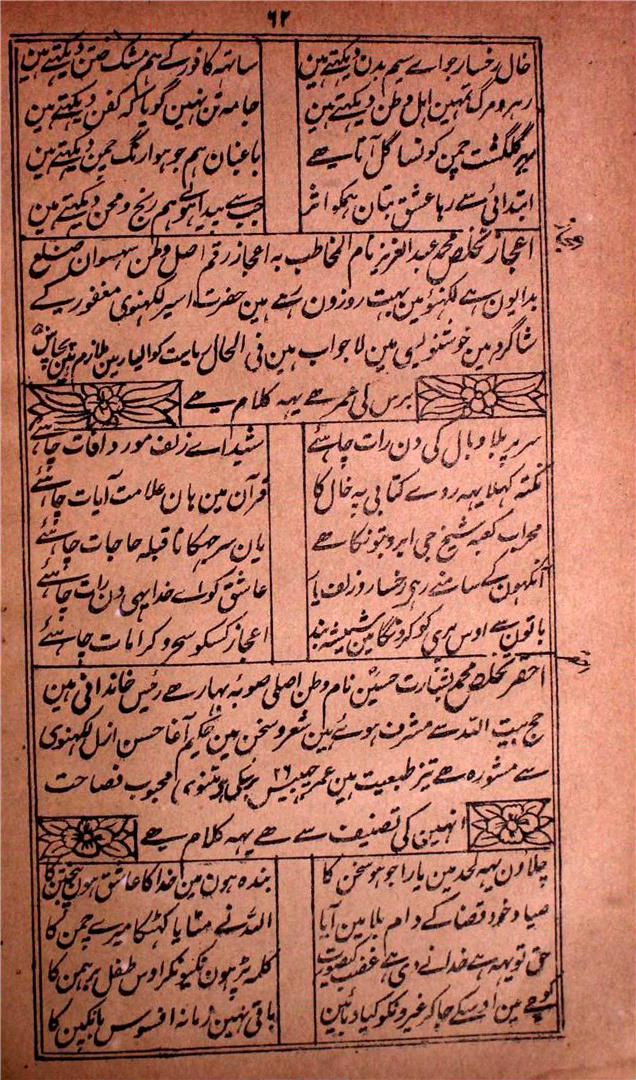 ۶۲
خال رخسار جو اے سیم بدن دیکہتے ہین ساتہہ کافور کے ہم مشک ختن دیکہتے ہین
رہرو مرگ تمہین اہل وطن دیکہتے ہین جامہ تن نہین گویا کہ کفن دیکہتے ہین
سیر گلگشت چمن کو نسا گل آتا ہے باغبان ہم جو ہوا رنگ چمن دیکہتے ہین
ابتدائی سے رہا عشق بتان ہمکو اثر جب سے پیدا ہوے ہم رنج و محن دیکہتے ہین
اعجاز تخلص محمد عبد العزیز نام المخاطب بہ اعجاز رقم اصل وطن سہسوان ضلع
بدایون ہے لکہنؤ مین بہت روزون رہے ہین حضرت اسیر لکہنوی مغفور کے
شاگرد ہین خوشنویسی مین لاجواب ہین فی الحال ریاست گوالیار مین ملازم ہین پچاس
برس کی عمر ہے یہہ کلام ہے
سر پر بلا و بال کی دن رات چاہئے شیداے زلف مورد آفات چاہئے
نکتہ کہلا یہہ روے کتابی پہ خال کا قرآن مین ہان علامت آیات چاہئے
محراب کعبہ شیخ جی ابرو بتونکا ہے یان سر جہکانا قبلہ حاجات چاہئے
آنکہون کے سامنے رہے رخسار و زلف یار عاشق کو اے خدا یہی دن رات چاہئے
باتون سے اوس پری کو کرونگا مین شیشہ بند اعجاز کسکو سحر و کرامات چاہئے
احقر تخلص محمد بشارت حسین نام وطن اصلی صوبہ بہار ہے رئیس خاندانی ہین
حج بیت اللہ سے مشرف ہوئے ہین شعر و سخن مین حکیم آغا حسن ازل لکہنوی
سے مشورہ ہے تیز طبیعت ہین عمر چہبیس ۲۶ برسکی ہے مثنوی محبوب فصاحت
انہین کی تصنیف سے ہے یہہ کلام ہے
چلاون یہہ لحد مین یارا جو ہو سخن کا بندہ ہون مین خدا کا عاشق ہون پنجتن کا
صیاد خود قضا کے دام بلا مین آیا اللہ نے مٹایا کہٹکا میرے چمن کا
حق تو یہہ ہے خدا نے دی ہے غضب کی صورت کلمہ پڑہون نکیونکر اوس طفل برہمن کا
کوچے مین اوسکے جاکر غیرونکو کیا دبائین باقی نہین زمانہ افسوس بانکپن کا